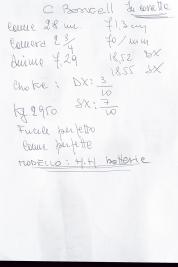 C Boncell
canne 28 in. 71,3 cm
camera 2 3/4 70/mm
Anima 7.29 18,52 DX
18.55 SX
Choke: DX: 3/10
SX: 7/10
Kg 2950
Fucile perfetto
Canne perfette
MODELLO: M.M batterie